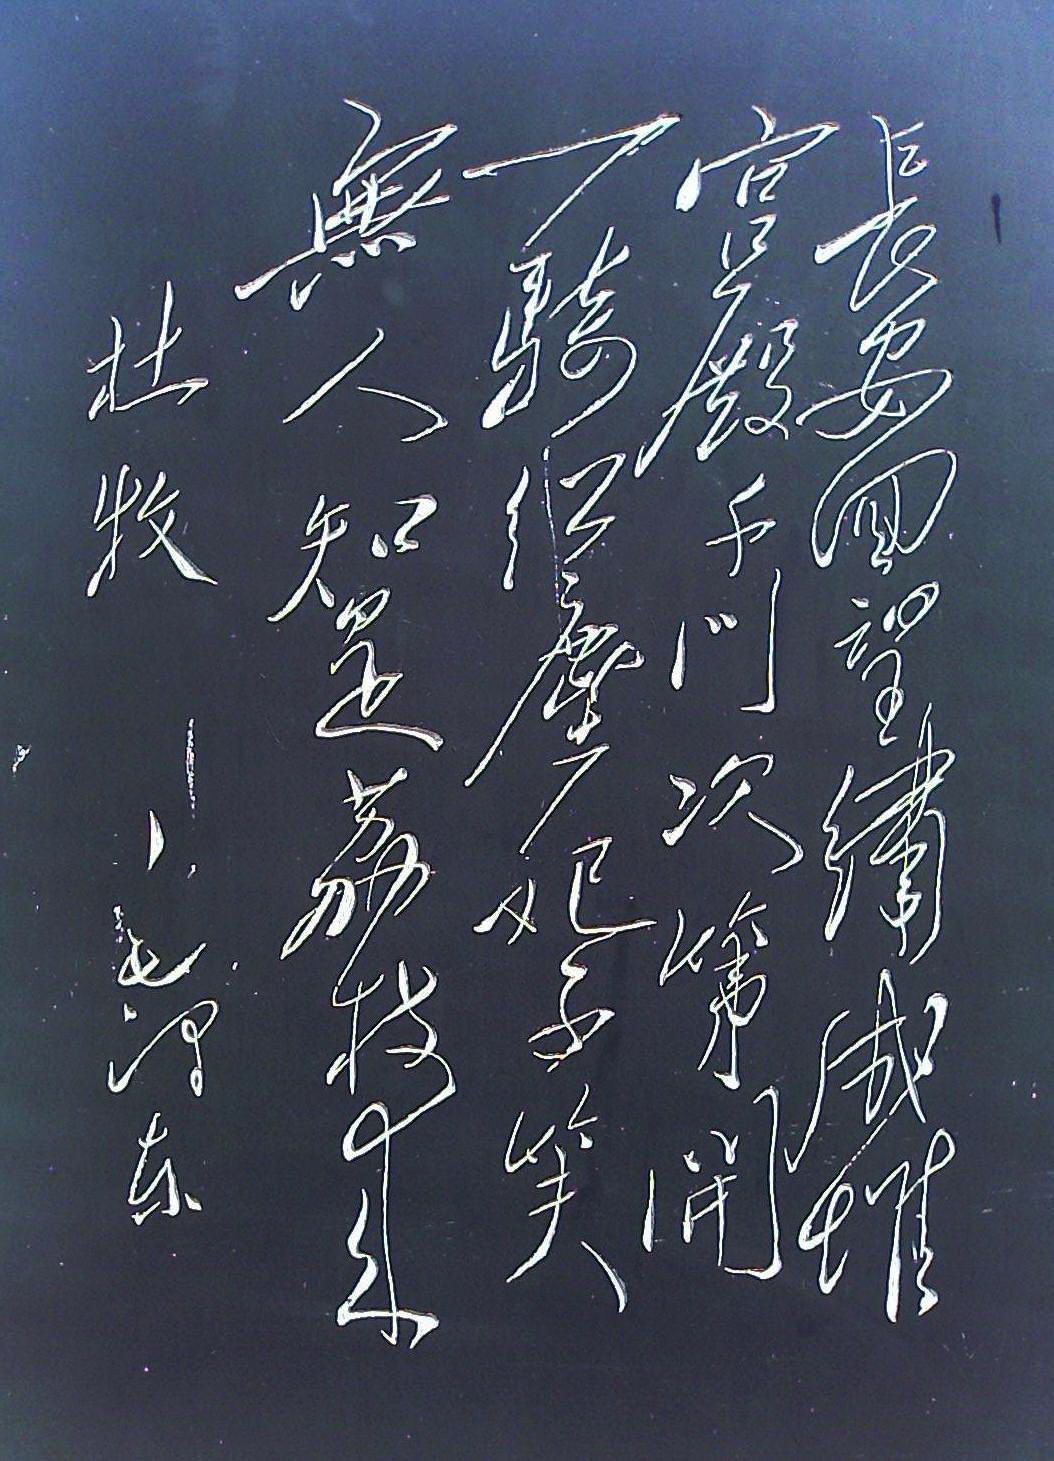 長安回望繡成堆
宫殿千门次第開
一騎红塵妃子笑
無人知是荔枝来
杜牧
毛泽东